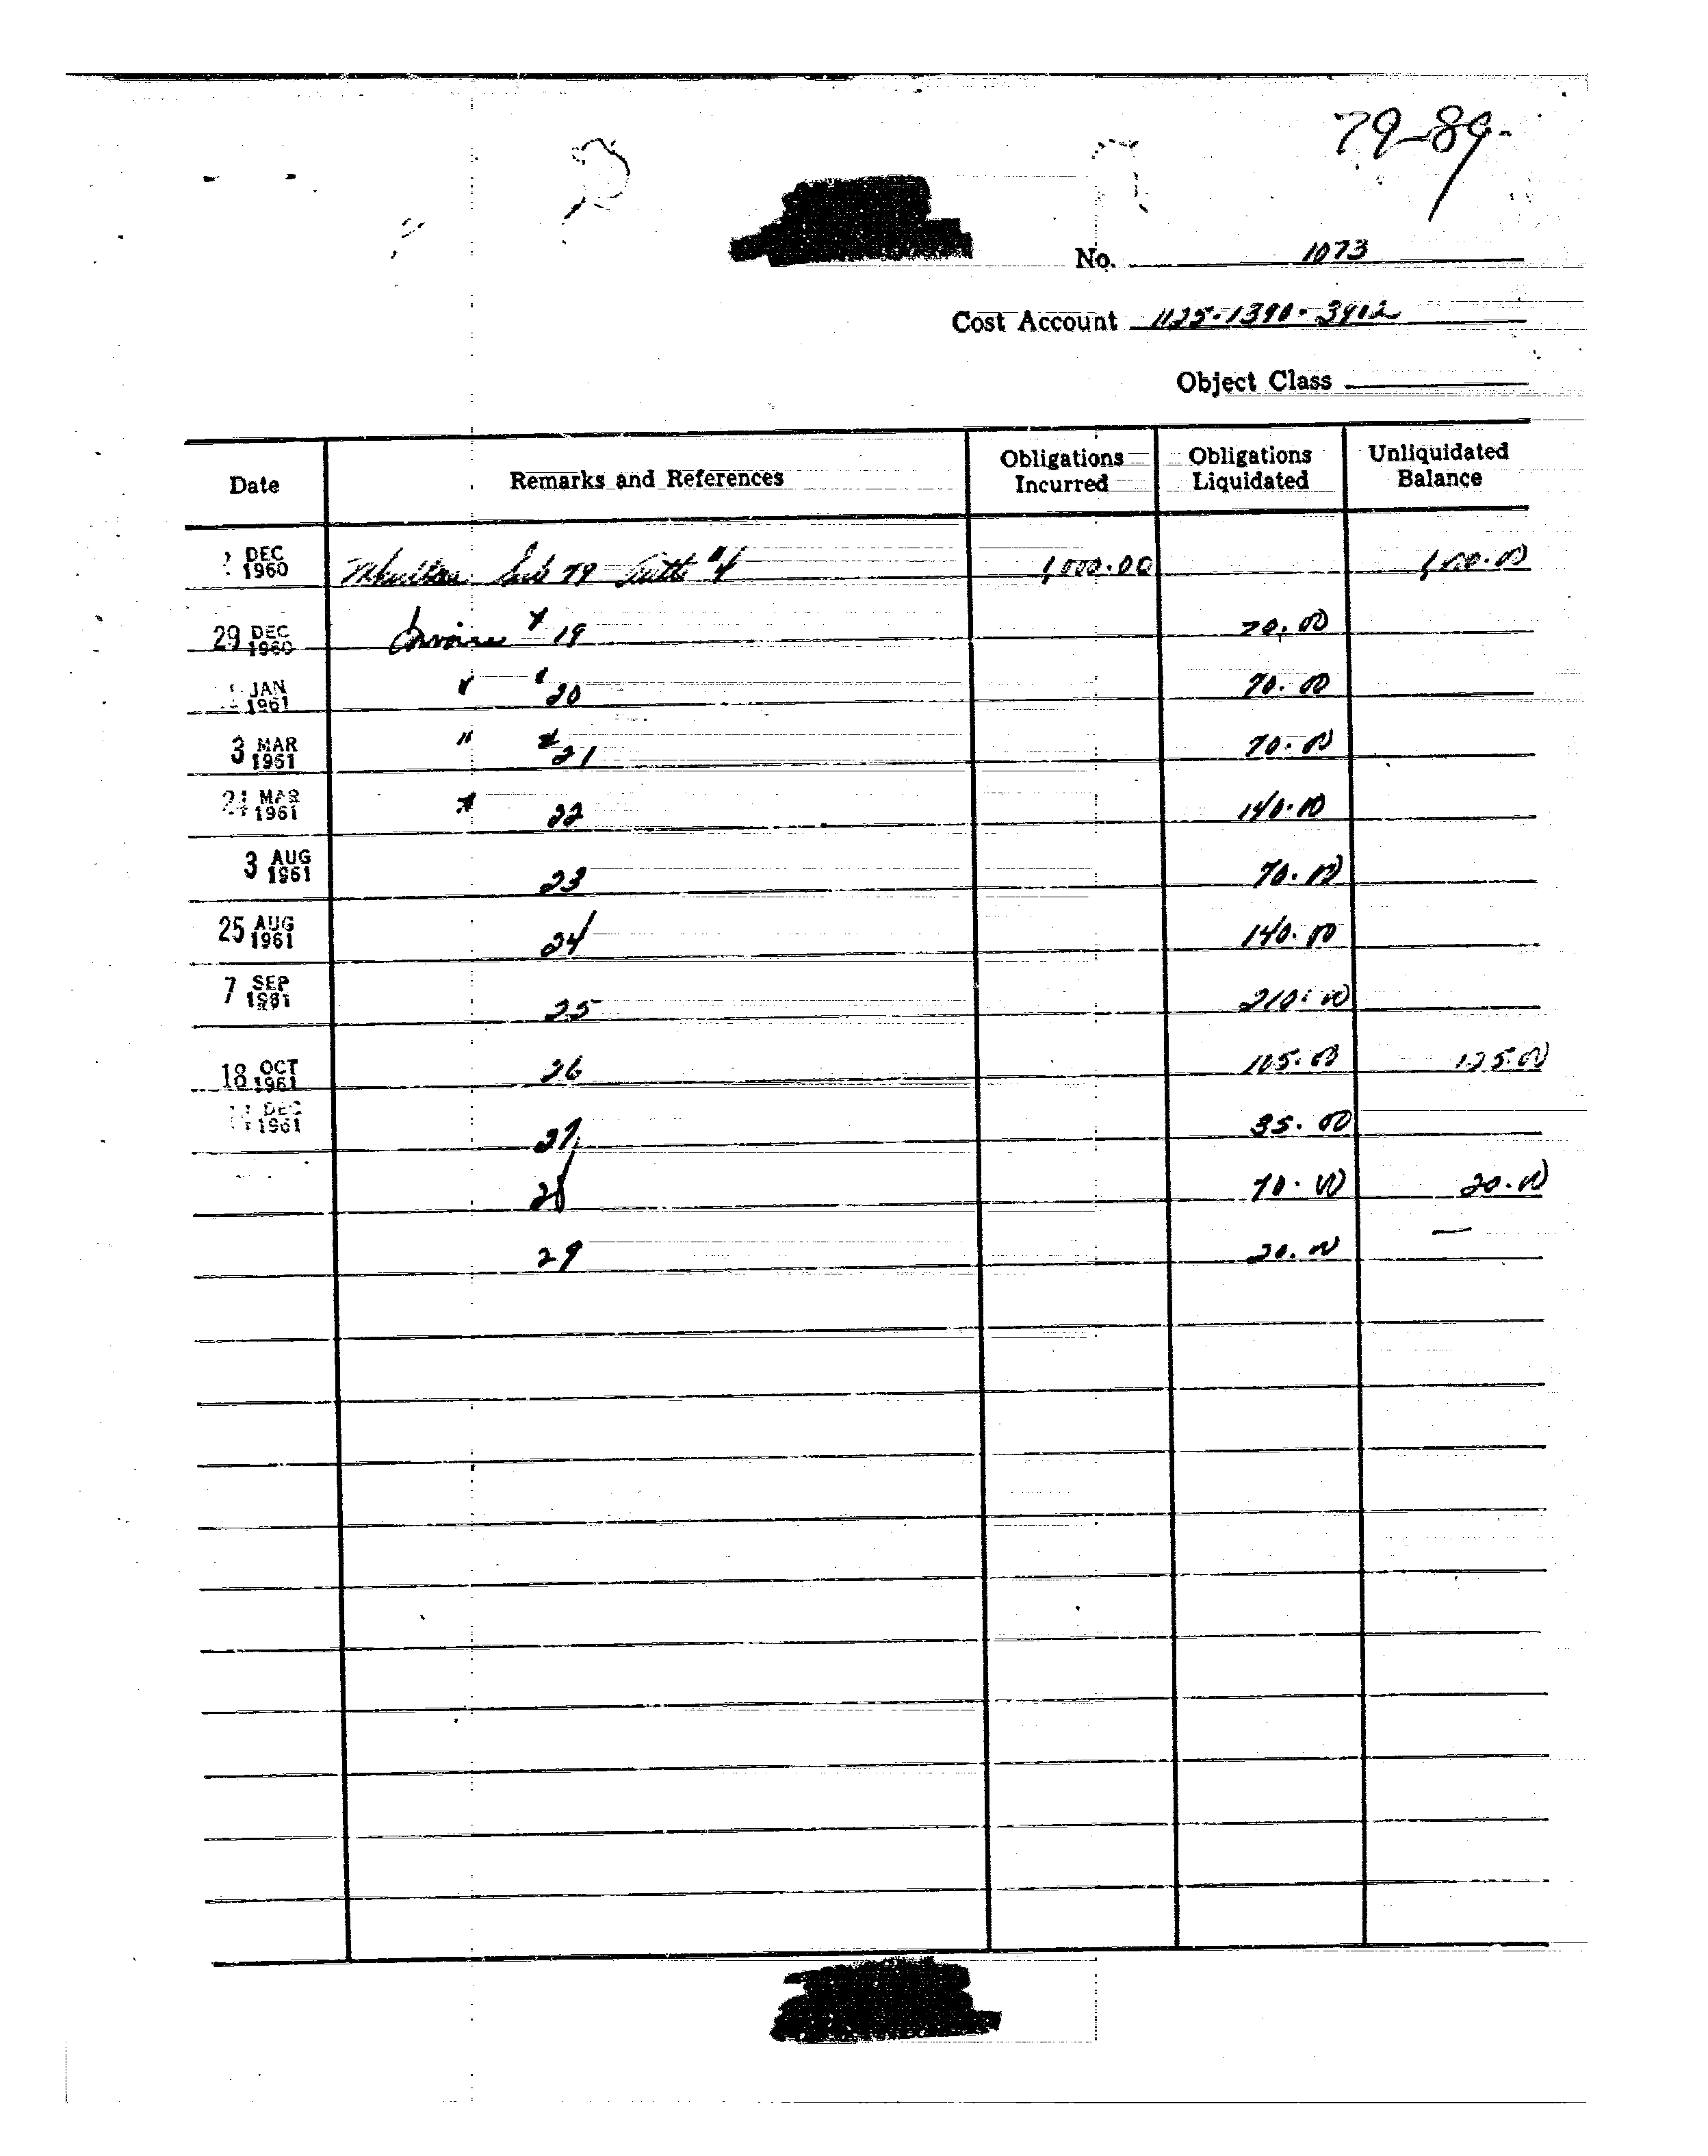 79-89
No. 1073
Cost Account 1125-1390-3902
Object Class
Date Remarks and References Obligations Incurred Obligations Liquidated Unliquidated Balance
DEC 1960 Sub 79 #4 1,000.00 1,000.00
29 DEC 1960 Invoice # 19 70.00
JAN 1961 " " 20 70.00
3 MAR 1961 " # 21 70.00
24 MAR 1961 22 140.00
3 AUG 1961 23 70.00
25 AUG 1961 24 140.00
7 SEP 1961 25 210.00
18 OCT 1961 26 105.00 125.00
DEC 1961 27 35.00
28 70.00 20.00
29 20.00 —